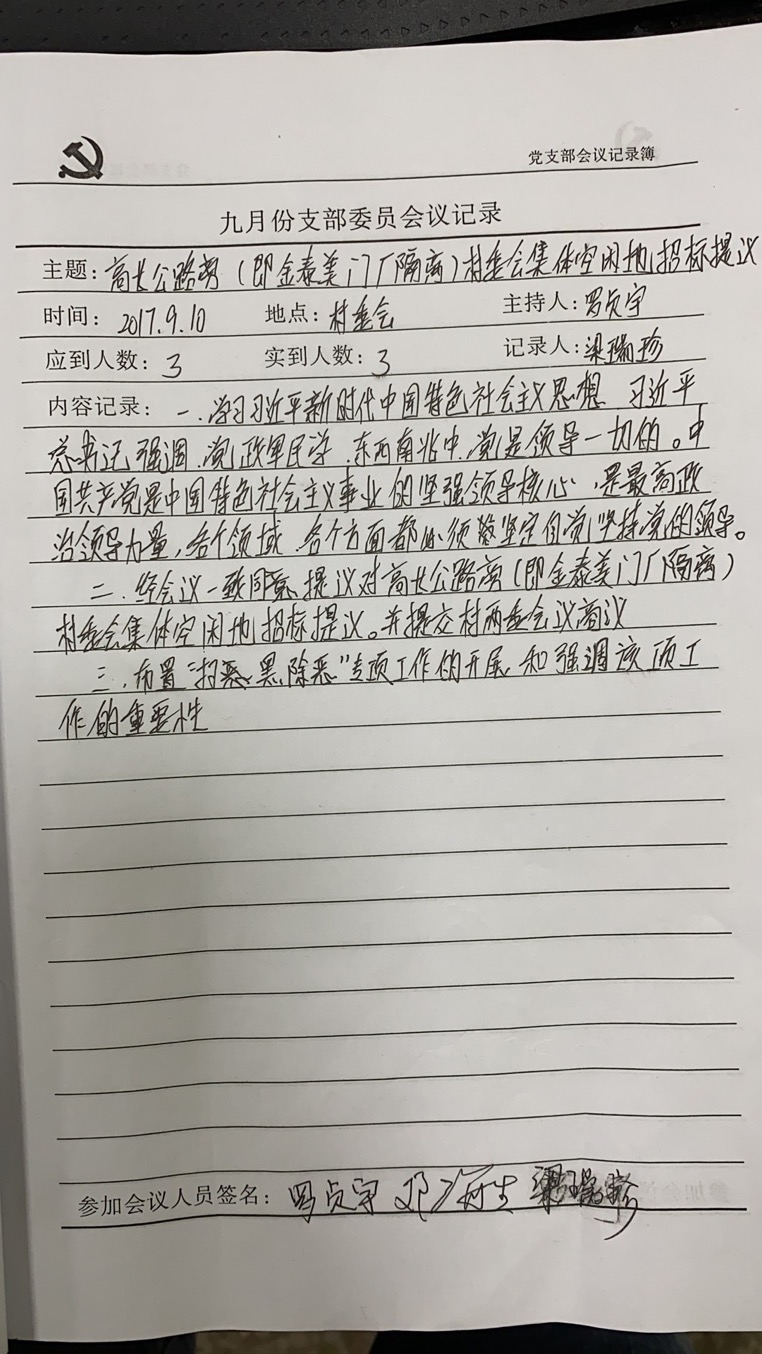 党支部会议记录簿
九月份支部委员会议记录
主题：高长公路旁（即金泰美门厂隔离）村委会集体空闲地招标提议
时间：2017.9.10 地点：村委会 主持人：罗贞宇
应到人数：3 实到人数：3 记录人：梁瑞珍
内容记录：一、学习习近平新时代中国特色社会主义思想 习近平
总书记强调，党政军民学，东西南北中，党是领导一切的。中
国共产党是中国特色社会主义事业的坚强领导核心，是最高政
治领导力量，各个领域、各个方面都必须坚定自觉坚持党的领导。
二、经会议一致同意，提议对高长公路旁（即金泰美门厂隔离）
村委会集体空闲地招标提议。并提交村两委会议商议
三、布置“扫黑除恶”专项工作的开展 和强调该项工
作的重要性
参加会议人员签名：罗贞宇 邓 生 梁瑞珍